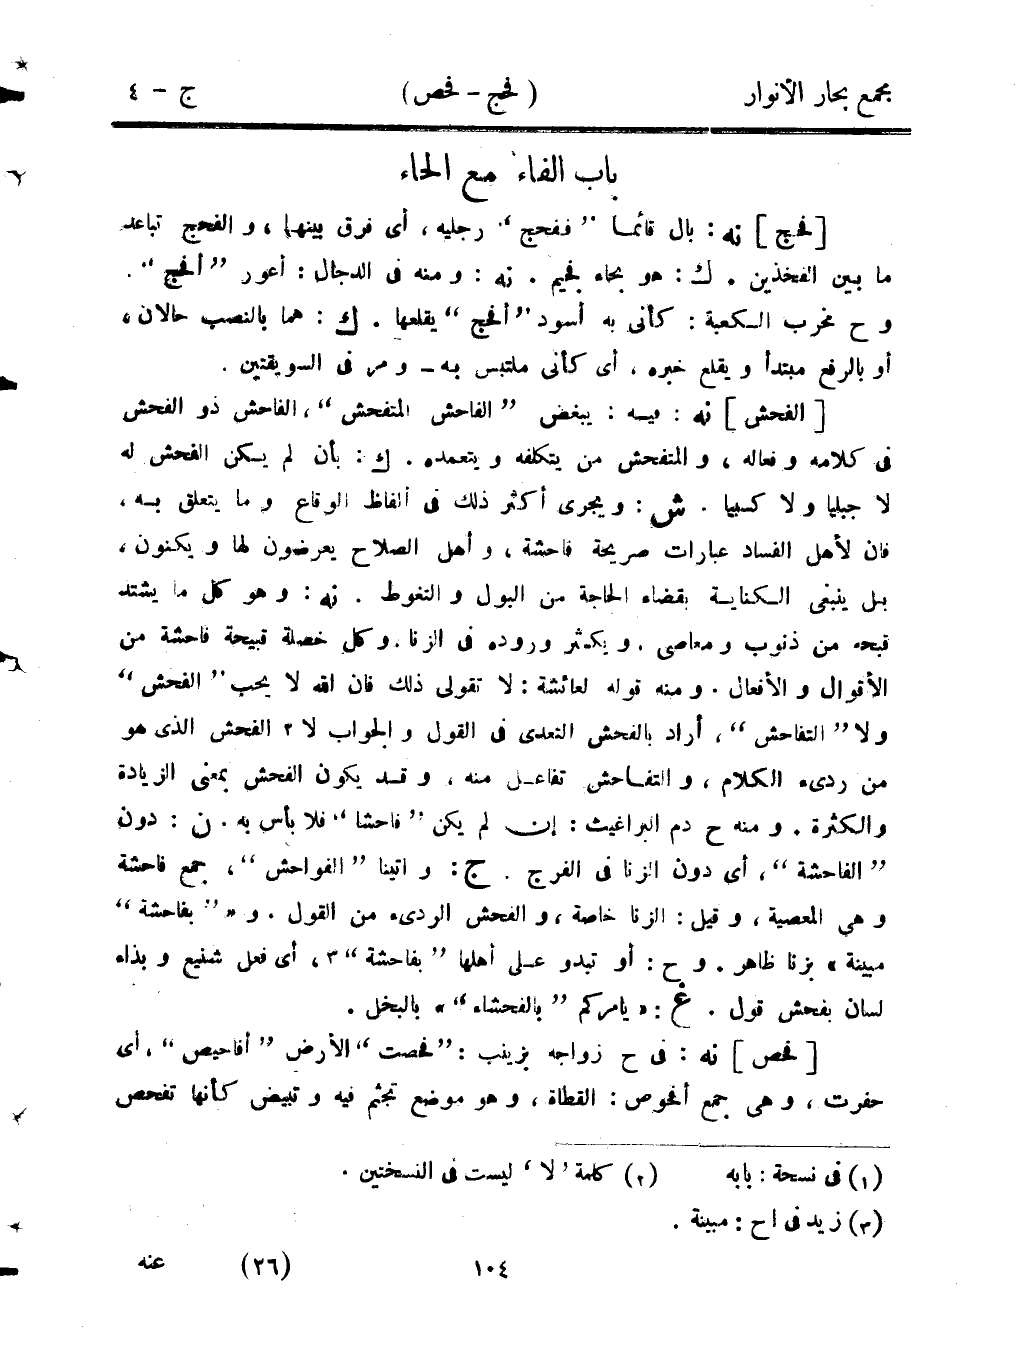 مجمع بحار الأنوار (فحج - فحص) ج - ٤
باب الفاء مع الحاء
[فحج] نه: بال قائما ”ففحج“ رجليه، أى فرق بينهما، و الفحج تباعد
ما بين الفخذين. ك: هو بحاء فجيم. نه: و منه فى الدجال: أعور ”أفحج“.
و ح مخرب الكعبة: كأنى به أسود ”أفحج“ يقلعها. ك: هما بالنصب حالان،
أو بالرفع مبتدأ و يقلع خبره، أى كأنى ملتبس به - و مر فى السويقتين.
[الفحش] نه: فيه: يبغض ”الفاحش المتفحش“، الفاحش ذو الفحش
فى كلامه و فعاله، و المتفحش من يتكلفه و يتعمده. ك: بأن لم يكن الفحش له
لا جبليا و لا كسبيا. ش: و يجرى أكثر ذلك فى ألفاظ الوقاع و ما يتعلق به،
فان لأهل الفساد عبارات صريحة فاحشة، و أهل الصلاح يعرضون لها و يكنون،
بل ينبغى الكناية بقضاء الحاجة من البول و التغوط. نه: و هو كل ما يشتد
قبحه من ذنوب و معاصى. و يكثر وروده فى الزنا. و كل خصلة قبيحة فاحشة من
الأقوال و الأفعال. و منه قوله لعائشة: لا تقولى ذلك فان الله لا يحب ”الفحش“
و لا ”التفاحش“، أراد بالفحش التعدى فى القول و الجواب لا ٢ الفحش الذى هو
من ردىء الكلام، و التفاحش تفاعل منه، و قد يكون الفحش بمعنى الزيادة
والكثرة. و منه ح دم البراغيث: إن لم يكن ”فاحشا“ فلا بأس به. ن: دون
”الفاحشة“، أي دون الزنا فى الفرج. ج: و اتينا ”الفواحش“، جمع فاحشة
و هي المعصية، و قيل: الزنا خاصة، و الفحش الردىء من القول. و « ”بفاحشة“
مبينة » بزنا ظاهر. و ح: أو تبدو على أهلها ”بفاحشة“ ٣، أى فعل شنيع و بذاء
لسان بفحش قول. غ: « يامركم ”بالفحشاء“ » بالبخل.
[فحص] نه: فى ح زواجه بزينب: ”فحصت“ الأرض ”أفاحيص“، أى
حفرت، و هى جمع أفحوص: القطاة، و هو موضع تجثم فيه و تبيض كأنها تفحص
(١) فى نسخة: بابه (٢) كلمة ’لا‘ ليست فى النسختين.
(٣) زيد فى ا ح: مبينة.
١٠٤ (٢٦) عنه